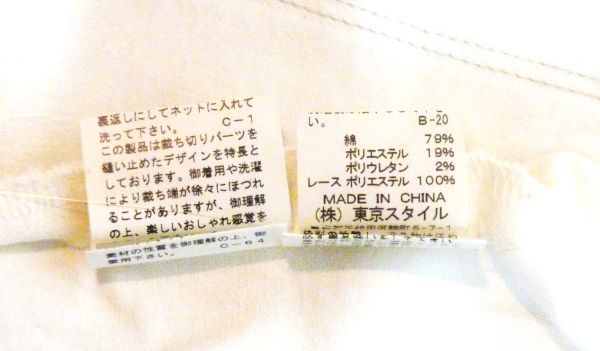 裏返しにしてネットに入れて
洗って下さい。 C-1
この製品は裁ち切りパーツを
縫い止めたデザインを特長と
しております。御着用や洗濯
により裁ち端が徐々にほつれ
ることがありますが、御理解
の上、楽しいおしゃれ感覚を
素材の性質を御理解の上、御
愛用下さい。 C-64
い。 B-20
綿 79%
ポリエステル 19%
ポリウレタン 2%
レース ポリエステル 100%
MADE IN CHINA
(株) 東京スタイル